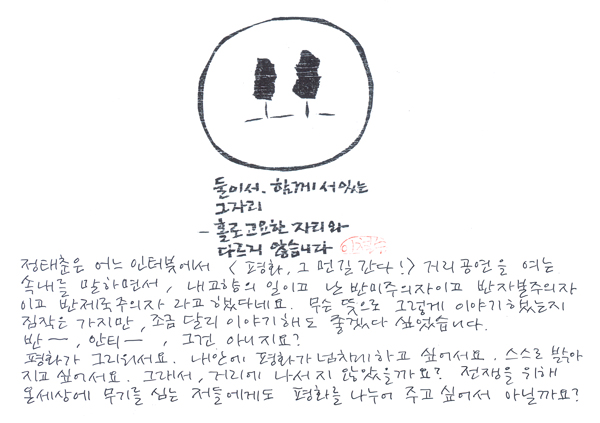 둘이서. 함께 서있는
그자리
- 홀로 고요한 자리와
다르지 않습니다
정태춘은 어느 인터뷰에서 〈평화, 그 먼길 간다!〉 거리공연을 여는
속내를 말하면서, 내 고향의 일이고 난 반미주의자이고 반자본주의자
이고 반제국주의자 라고 했다네요. 무슨 뜻으로 그렇게 이야기 했는지
짐작은 가지만, 조금 달리 이야기해도 좋겠다 싶었습니다.
반 —, 안티—, 그건 아니지요?
평화가 그리워서요. 내안에 평화가 넘차게 하고 싶어서요. 스스로 밝아
지고 싶어서요. 그래서, 거리에 나서지 않았을까요? 전쟁을 위해
온세상에 무기를 심는 저들에게도 평화를 나누어 주고 싶어서 아닐까요?